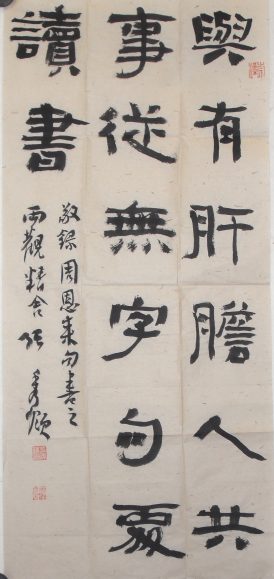 與有肝膽人共
事從無字句處
讀書
敬録周恩来句書之
雨觀精舍張